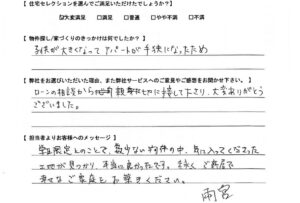 【 住宅セレクションを選んでご満足いただけたでしょうか? 】
☑大変満足 □満足 □普通 □やや不満 □不満
【 物件探し/家づくりのきっかけは何でしたか? 】
子供が大きくなって アパートが手狭になったため
【 弊社をお選びいただいた理由、また弊社サービスへのご意見やご感想をお聞かせ下さい。 】
ローンの相談から
接して下さり、大変ありがとう
ございました。
【 担当者よりお客様へのメッセージ 】
限定とのことで、数少ない条件の中、気に入ってくださった
土地が見つかり、本当に良かったです。末永く ご家族で
幸せなご家庭をお築きください。
雨宮